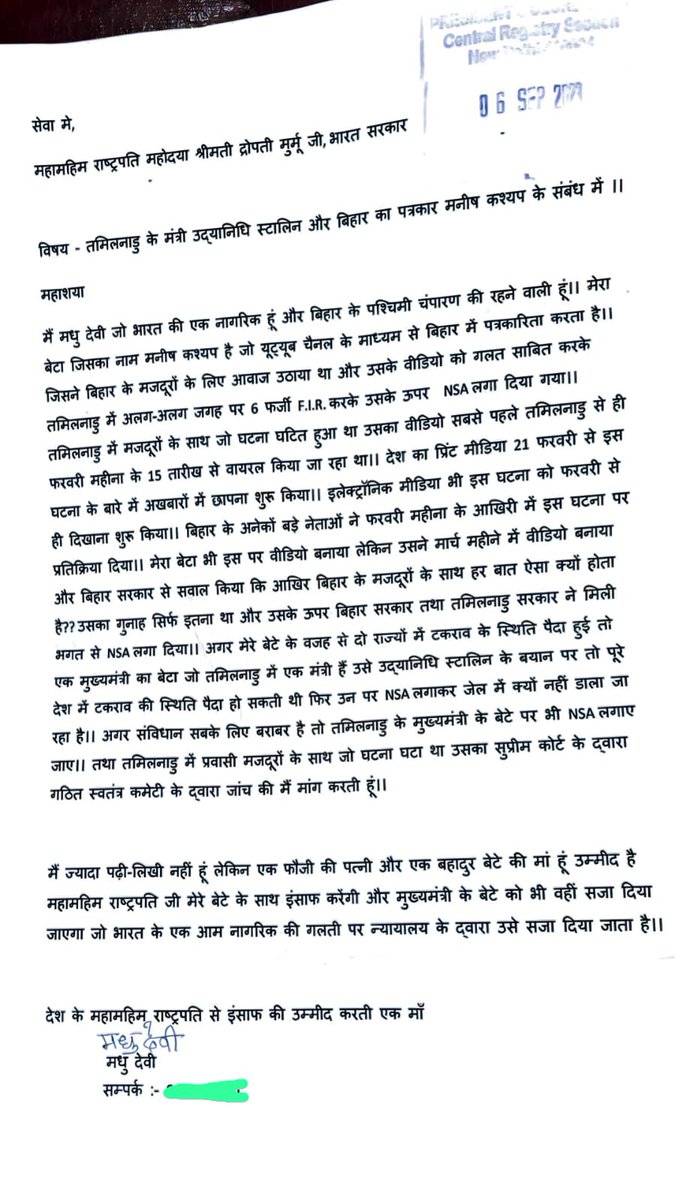 Central Registry Section
06 SEP 2023
सेवा मे,
महामहिम राष्ट्रपति महोदया श्रीमती द्रोपती मुर्मू जी, भारत सरकार
विषय - तमिलनाडु के मंत्री उद्यानिधि स्टालिन और बिहार का पत्रकार मनीष कश्यप के संबंध में ।।
महाशया
मैं मधु देवी जो भारत की एक नागरिक हूं और बिहार के पश्चिमी चंपारण की रहने वाली हूं।। मेरा
बेटा जिसका नाम मनीष कश्यप है जो यूट्यूब चैनल के माध्यम से बिहार में पत्रकारिता करता है।।
जिसने बिहार के मजदूरों के लिए आवाज उठाया था और उसके वीडियो को गलत साबित करके
तमिलनाडु में अलग-अलग जगह पर 6 फर्जी F.I.R. करके उसके ऊपर NSA लगा दिया गया।।
तमिलनाडु में मजदूरों के साथ जो घटना घटित हुआ था उसका वीडियो सबसे पहले तमिलनाडु से ही
फरवरी महीना के 15 तारीख से वायरल किया जा रहा था।। देश का प्रिंट मीडिया 21 फरवरी से इस
घटना के बारे में अखबारों में छापना शुरू किया।। इलेक्ट्रॉनिक मीडिया भी इस घटना को फरवरी से
ही दिखाना शुरू किया।। बिहार के अनेकों बड़े नेताओं ने फरवरी महीना के आखिरी में इस घटना पर
प्रतिक्रिया दिया।। मेरा बेटा भी इस पर वीडियो बनाया लेकिन उसने मार्च महीने में वीडियो बनाया
और बिहार सरकार से सवाल किया कि आखिर बिहार के मजदूरों के साथ हर बात ऐसा क्यों होता
है?? उसका गुनाह सिर्फ इतना था और उसके ऊपर बिहार सरकार तथा तमिलनाडु सरकार ने मिली
भगत से NSA लगा दिया।। अगर मेरे बेटे के वजह से दो राज्यों में टकराव के स्थिति पैदा हुई तो
एक मुख्यमंत्री का बेटा जो तमिलनाडु में एक मंत्री हैं उसे उद्यानिधि स्टालिन के बयान पर तो पूरे
देश में टकराव की स्थिति पैदा हो सकती थी फिर उन पर NSA लगाकर जेल में क्यों नहीं डाला जा
रहा है।। अगर संविधान सबके लिए बराबर है तो तमिलनाडु के मुख्यमंत्री के बेटे पर भी NSA लगाए
जाए।। तथा तमिलनाडु में प्रवासी मजदूरों के साथ जो घटना घटा था उसका सुप्रीम कोर्ट के द्वारा
गठित स्वतंत्र कमेटी के द्वारा जांच की मैं मांग करती हूं।।
मैं ज्यादा पढ़ी-लिखी नहीं हूं लेकिन एक फौजी की पत्नी और एक बहादुर बेटे की मां हूं उम्मीद है
महामहिम राष्ट्रपति जी मेरे बेटे के साथ इंसाफ करेंगी और मुख्यमंत्री के बेटे को भी वहीं सजा दिया
जाएगा जो भारत के एक आम नागरिक की गलती पर न्यायालय के द्वारा उसे सजा दिया जाता है।।
देश के महामहिम राष्ट्रपति से इंसाफ की उम्मीद करती एक माँ
मधु देवी
मधु देवी
सम्पर्क :-